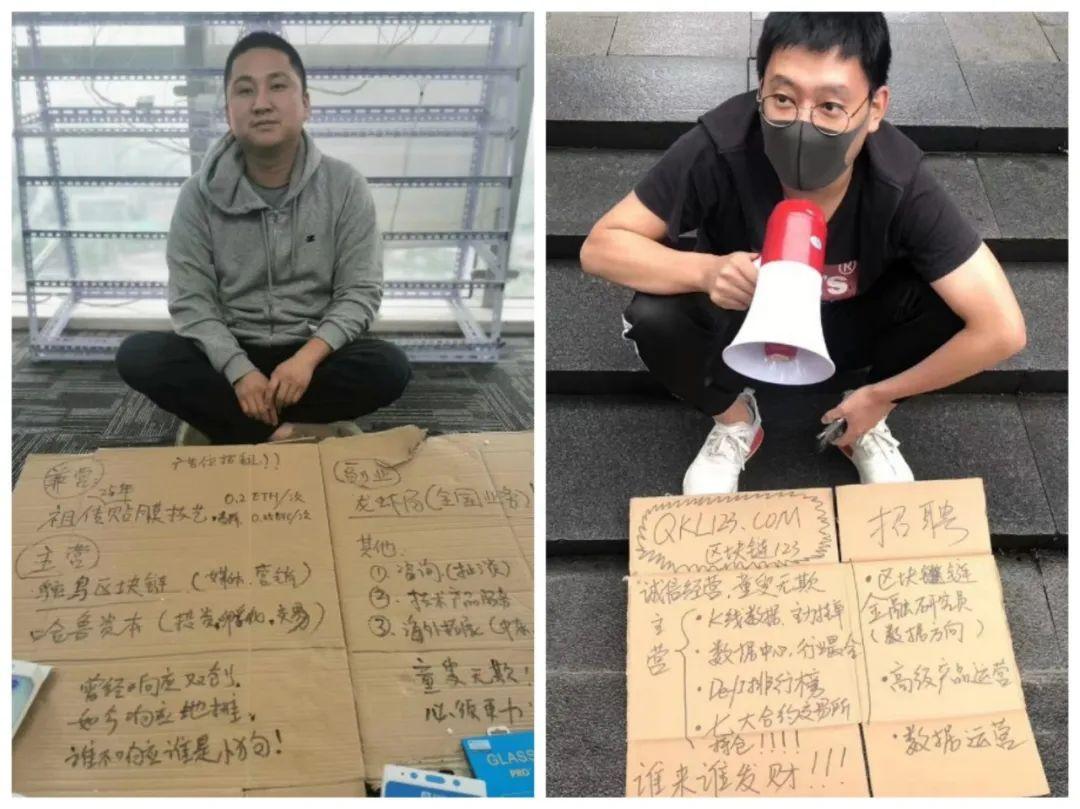 广告位招租!!
兼营
25年
祖传贴膜技艺. 0.2 ETH/次
主营
鸵鸟区块链 (媒体.营销)
哈鲁资本 (投资,孵化,交易)
曾经响应双创,
如今响应地摊,
谁不响应谁是小狗!
副业
龙虾局(全国业务)
其他.
① 咨询(扯淡)
② 技术产品服务
③ 海外拓展
童叟无欺!
GLASS
PRO
QKL123.COM
区块链123
诚信经营,童叟无欺
主营
• K线数据,主力挂单
• 数据中心,行业最全
• Defi排行榜
• 大合约交易所
持仓!!!!
谁来谁发财!!!
招聘
• 区块链
金融研究员
(数据方向)
• 高级产品运营
• 数据运营